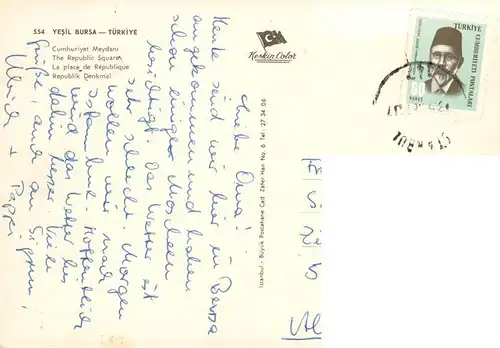 554 YEŞİL BURSA — TÜRKİYE
Cumhuriyet Meydanı
The Republic Square
La place de République
Republik Denkmal
Keskin Color
TÜRKİYE
CUMHURİYETİ POSTALARI
60
İSTANBUL
İstanbul - Büyük Postahane Cad. Zafer Han No. 6 Tel: 27 34 06
Liebe Oma!
Heute sind wir hier in Bursa
angekommen und haben
schon einige Moscheen
besichtigt. Das Wetter ist
sehr schlecht. Morgen
wollen wir nach
Istanbul. Hoffentlich
wird das Wetter bis
dahin besser. Viele
Grüße, auch an
Ulrich + Pappi